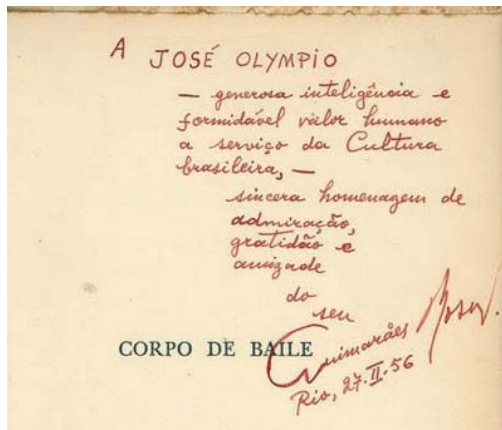 A JOSÉ OLYMPIO
— generosa inteligência e
formidável valor humano
a serviço da Cultura
brasileira, —
sincera homenagem de
admiração,
gratidão e
amizade
do
seu
Guimarães Rosa.
CORPO DE BAILE
Rio, 27.II.56